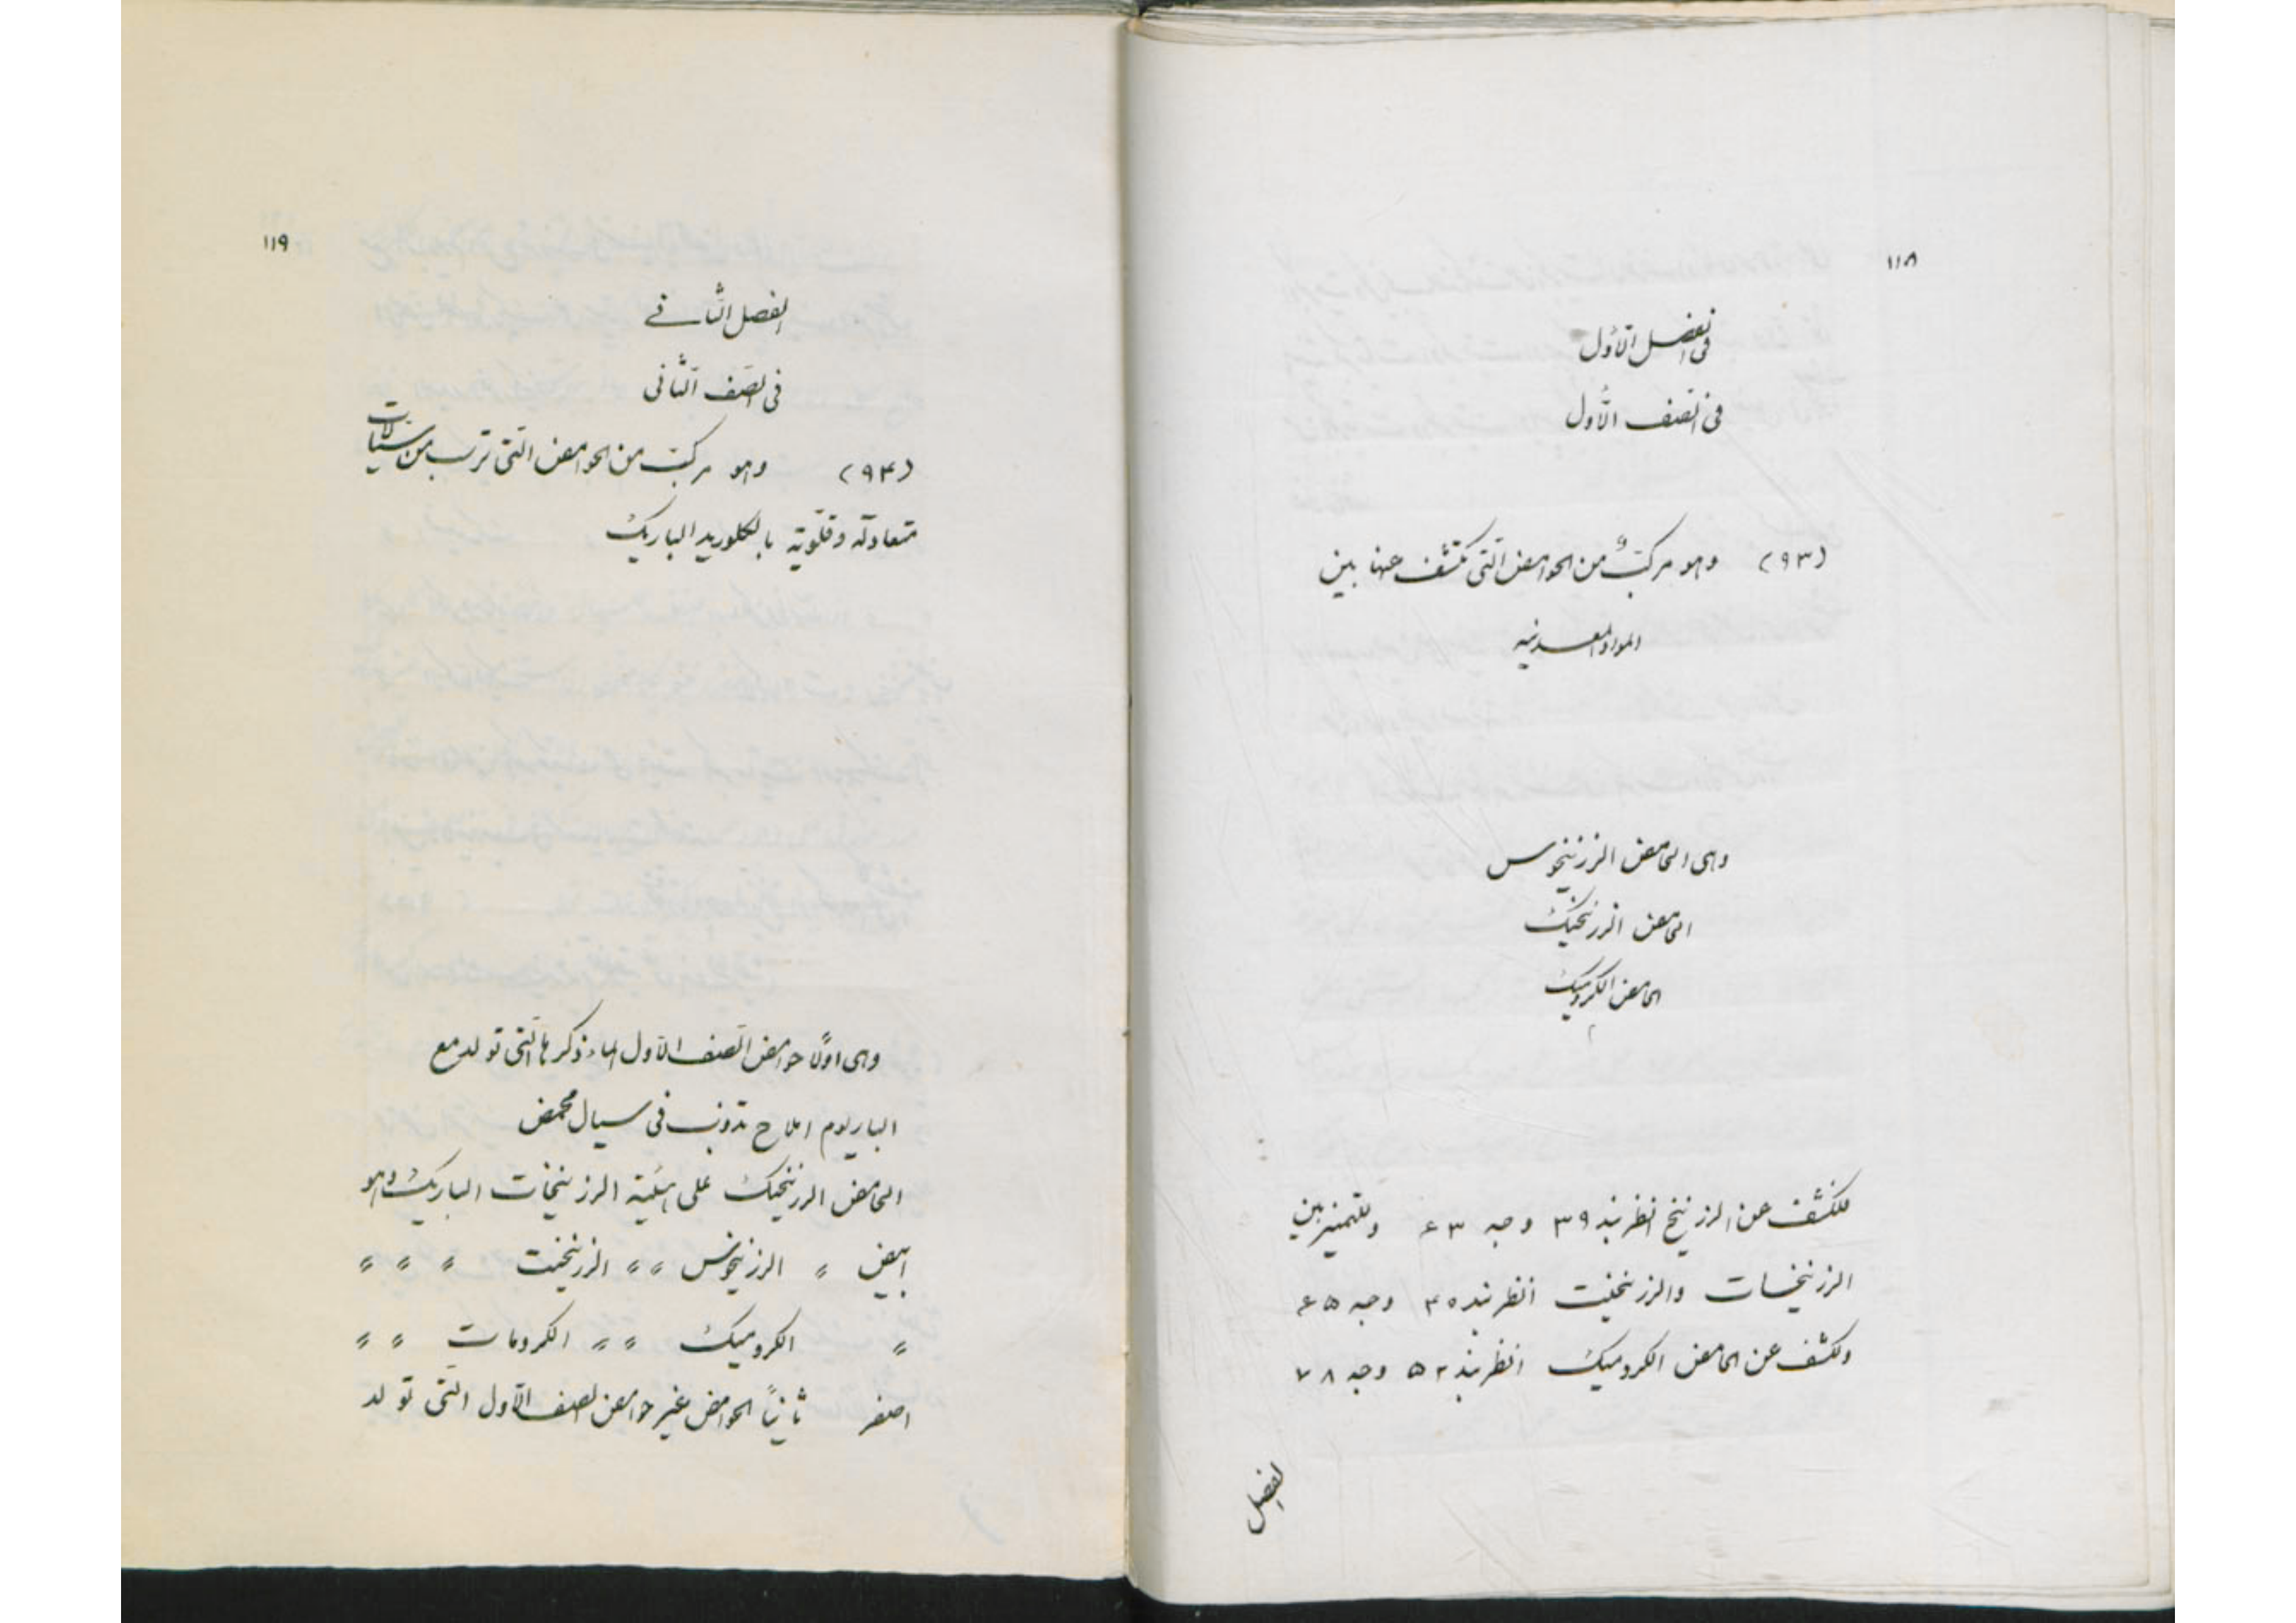 ١١٨
فی الفصل الاوّل
فی الصنف الاوّل
(٩٣) وهو مرکبٌ من الحوامض الّتی تکشف عنها بین
المواد المعدنیه
وهی الحامض الزرنیخوس
الحامض الزرنیخیک
الحامض الکرومیک
للکشف عن الزرنیخ انظر بند ٣٩ وجه ٦٣ وللتمیز بین
الزرنیخات والزرنیخیت انظر بند ٤٠ وجه ٦٥
ولکشف عن الحامض الکرومیک انظر بند ٥٢ وجه ٧٨
الفصل
١١٩
الفصل الثّانے
فی الصّنف الثّانی
(٩٤) وهو مرکبّ من الحوامض الّتی ترسب من سیّالات
متعادلة وقلّویّة بالکلورید الباریک
وهی اوّلًا حوامض الصّنف الاوّل المار ذکرها الّتی تولد مع
الباریوم املاح تذوب فی سیال محمض
الحامض الزرنیخیک علی هیئیة الزرنیخات الباریک وهو
ابیض " الزرنیخوس " " الزرنیخیت " " "
" الکرومیک " " الکرومات " "
اصفر ثانیاً الحوامض غیر حوامض الصنف الاّول الّتی تولد